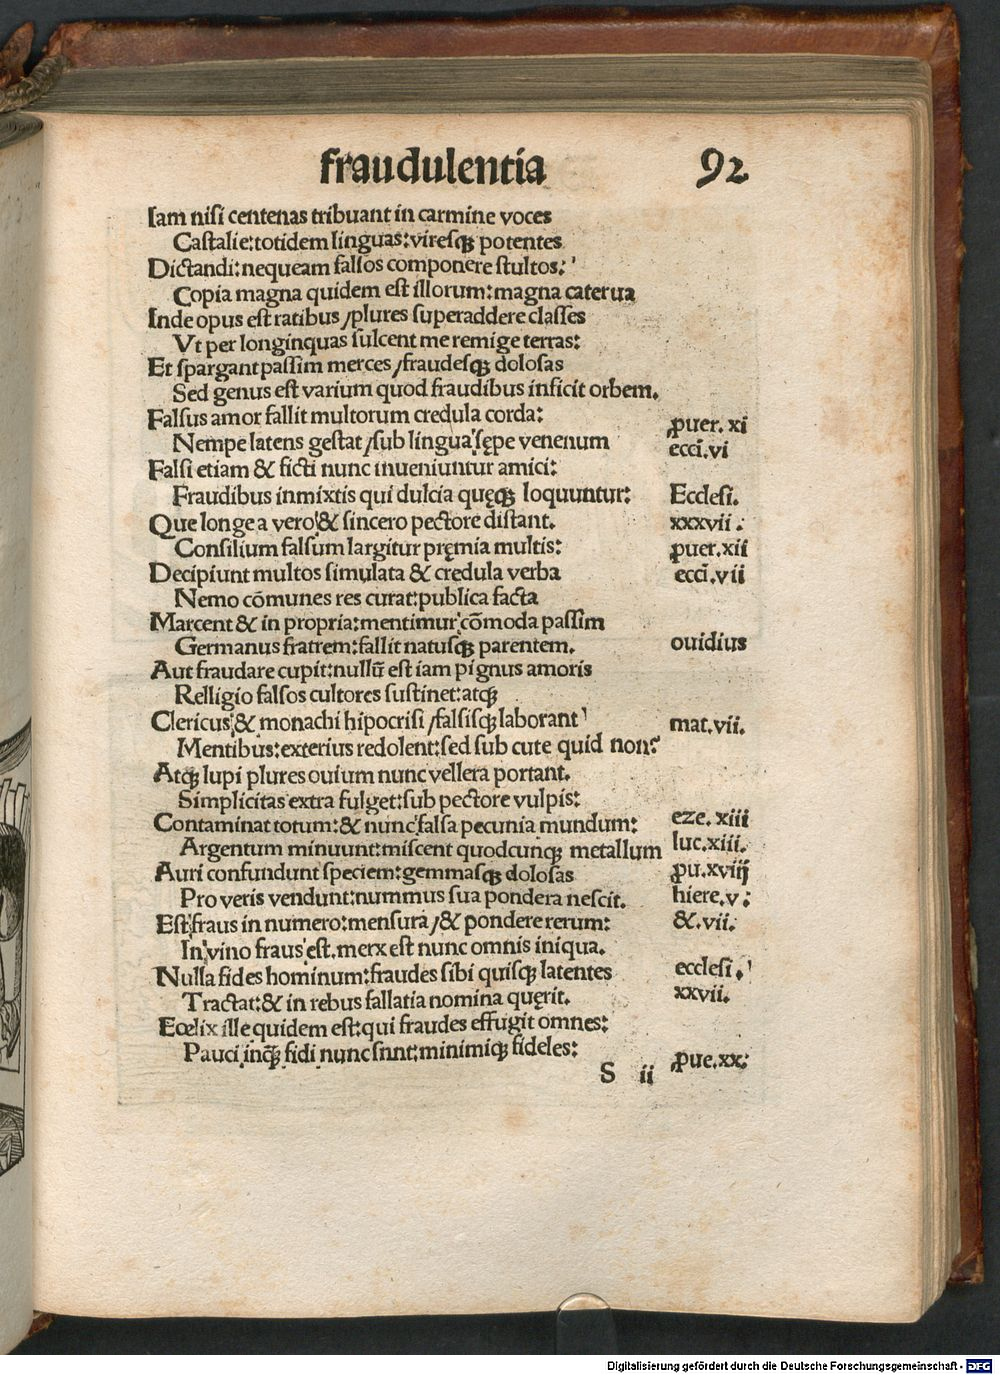 fraudulentia 92
Iam nisi centenas tribuant in carmine voces
Castalie:totidem linguas:viresqꝫ potentes
Dictandi:nequeam falsos componere stultos:
Copia magna quidem est illorum:magna caterua
Inde opus est ratibus/plures superaddere classes
Vt per longinquas sulcent me remige terras:
Et spargant passim merces/fraudesqꝫ dolosas
Sed genus est varium quod fraudibus inficit orbem.
Falsus amor fallit multorum credula corda: ꝓuer. xi
Nempe latens gestat/sub lingua sępe venenum ecci̅.vi
Falsi etiam & ficti nunc inueniuntur amici:
Fraudibus inmixtis qui dulcia quęqꝫ loquuntur: Ecclesi.
Que longe a vero & sincero pectore distant. xxxvii.
Consilium falsum largitur pręmia multis: ꝓuer.xii
Decipiunt multos simulata & credula verba ecci̅.vii
Nemo cōmunes res curat:publica facta
Marcent & in propria:mentimur cōmoda passim
Germanus fratrem:fallit natusqꝫ parentem. ouidius
Aut fraudare cupit:nullū est iam pignus amoris
Relligio falsos cultores sustinet:atqꝫ
Clericus & monachi hipocrisi/falsisqꝫ laborant mat.vii.
Mentibus:exterius redolent:sed sub cute quid non?
Atqꝫ lupi plures ouium nunc vellera portant.
Simplicitas extra fulget:sub pectore vulpis:
Contaminat totum:& nunc falsa pecunia mundum: eze. xiii
Argentum minuunt:miscent quodcunqꝫ metallum luc.xiii.
Auri confundunt speciem:gemmasqꝫ dolosas ꝓu.xviij
Pro veris vendunt:nummus sua pondera nescit. hiere.v:
Est fraus in numero:mensura/& pondere rerum: &.vii.
In vino fraus est.merx est nunc omnis iniqua.
Nulla fides hominum:fraudes sibi quisqꝫ latentes ecclesi.
Tractat:& in rebus fallatia nomina quęrit. xxvii.
Fœlix ille quidem est:qui fraudes effugit omnes:
Pauci inqꝫ fidi nunc snnt:minimiqꝫ fideles: ꝓue.xx:
S ii
Digitalisierung gefördert durch die Deutsche Forschungsgemeinschaft - DFG